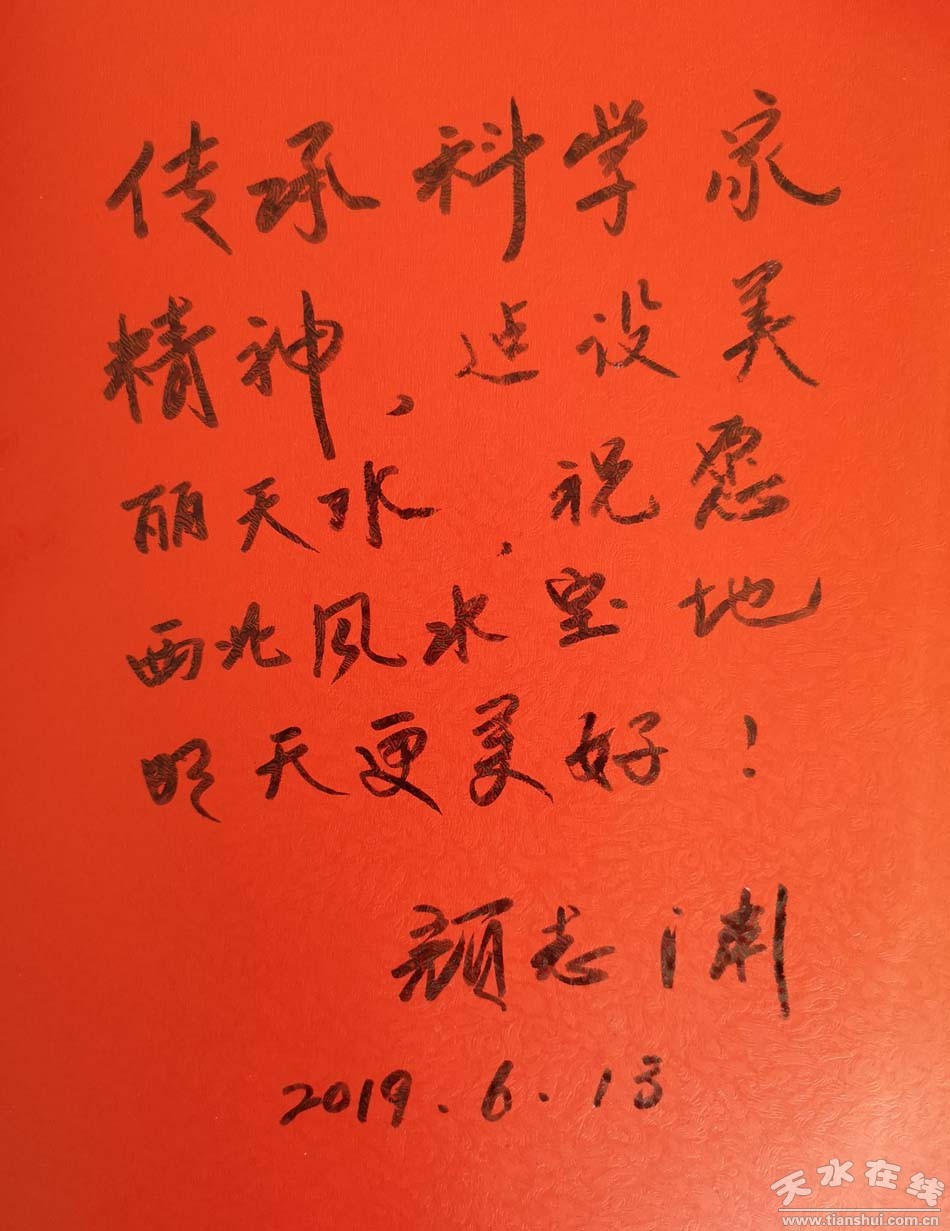 传承科学家
精神、建设美
丽天水.祝愿
西北风水宝地
明天更美好!
颜志渊
2019.6.13
天水在线
www.tianshui.com.cn